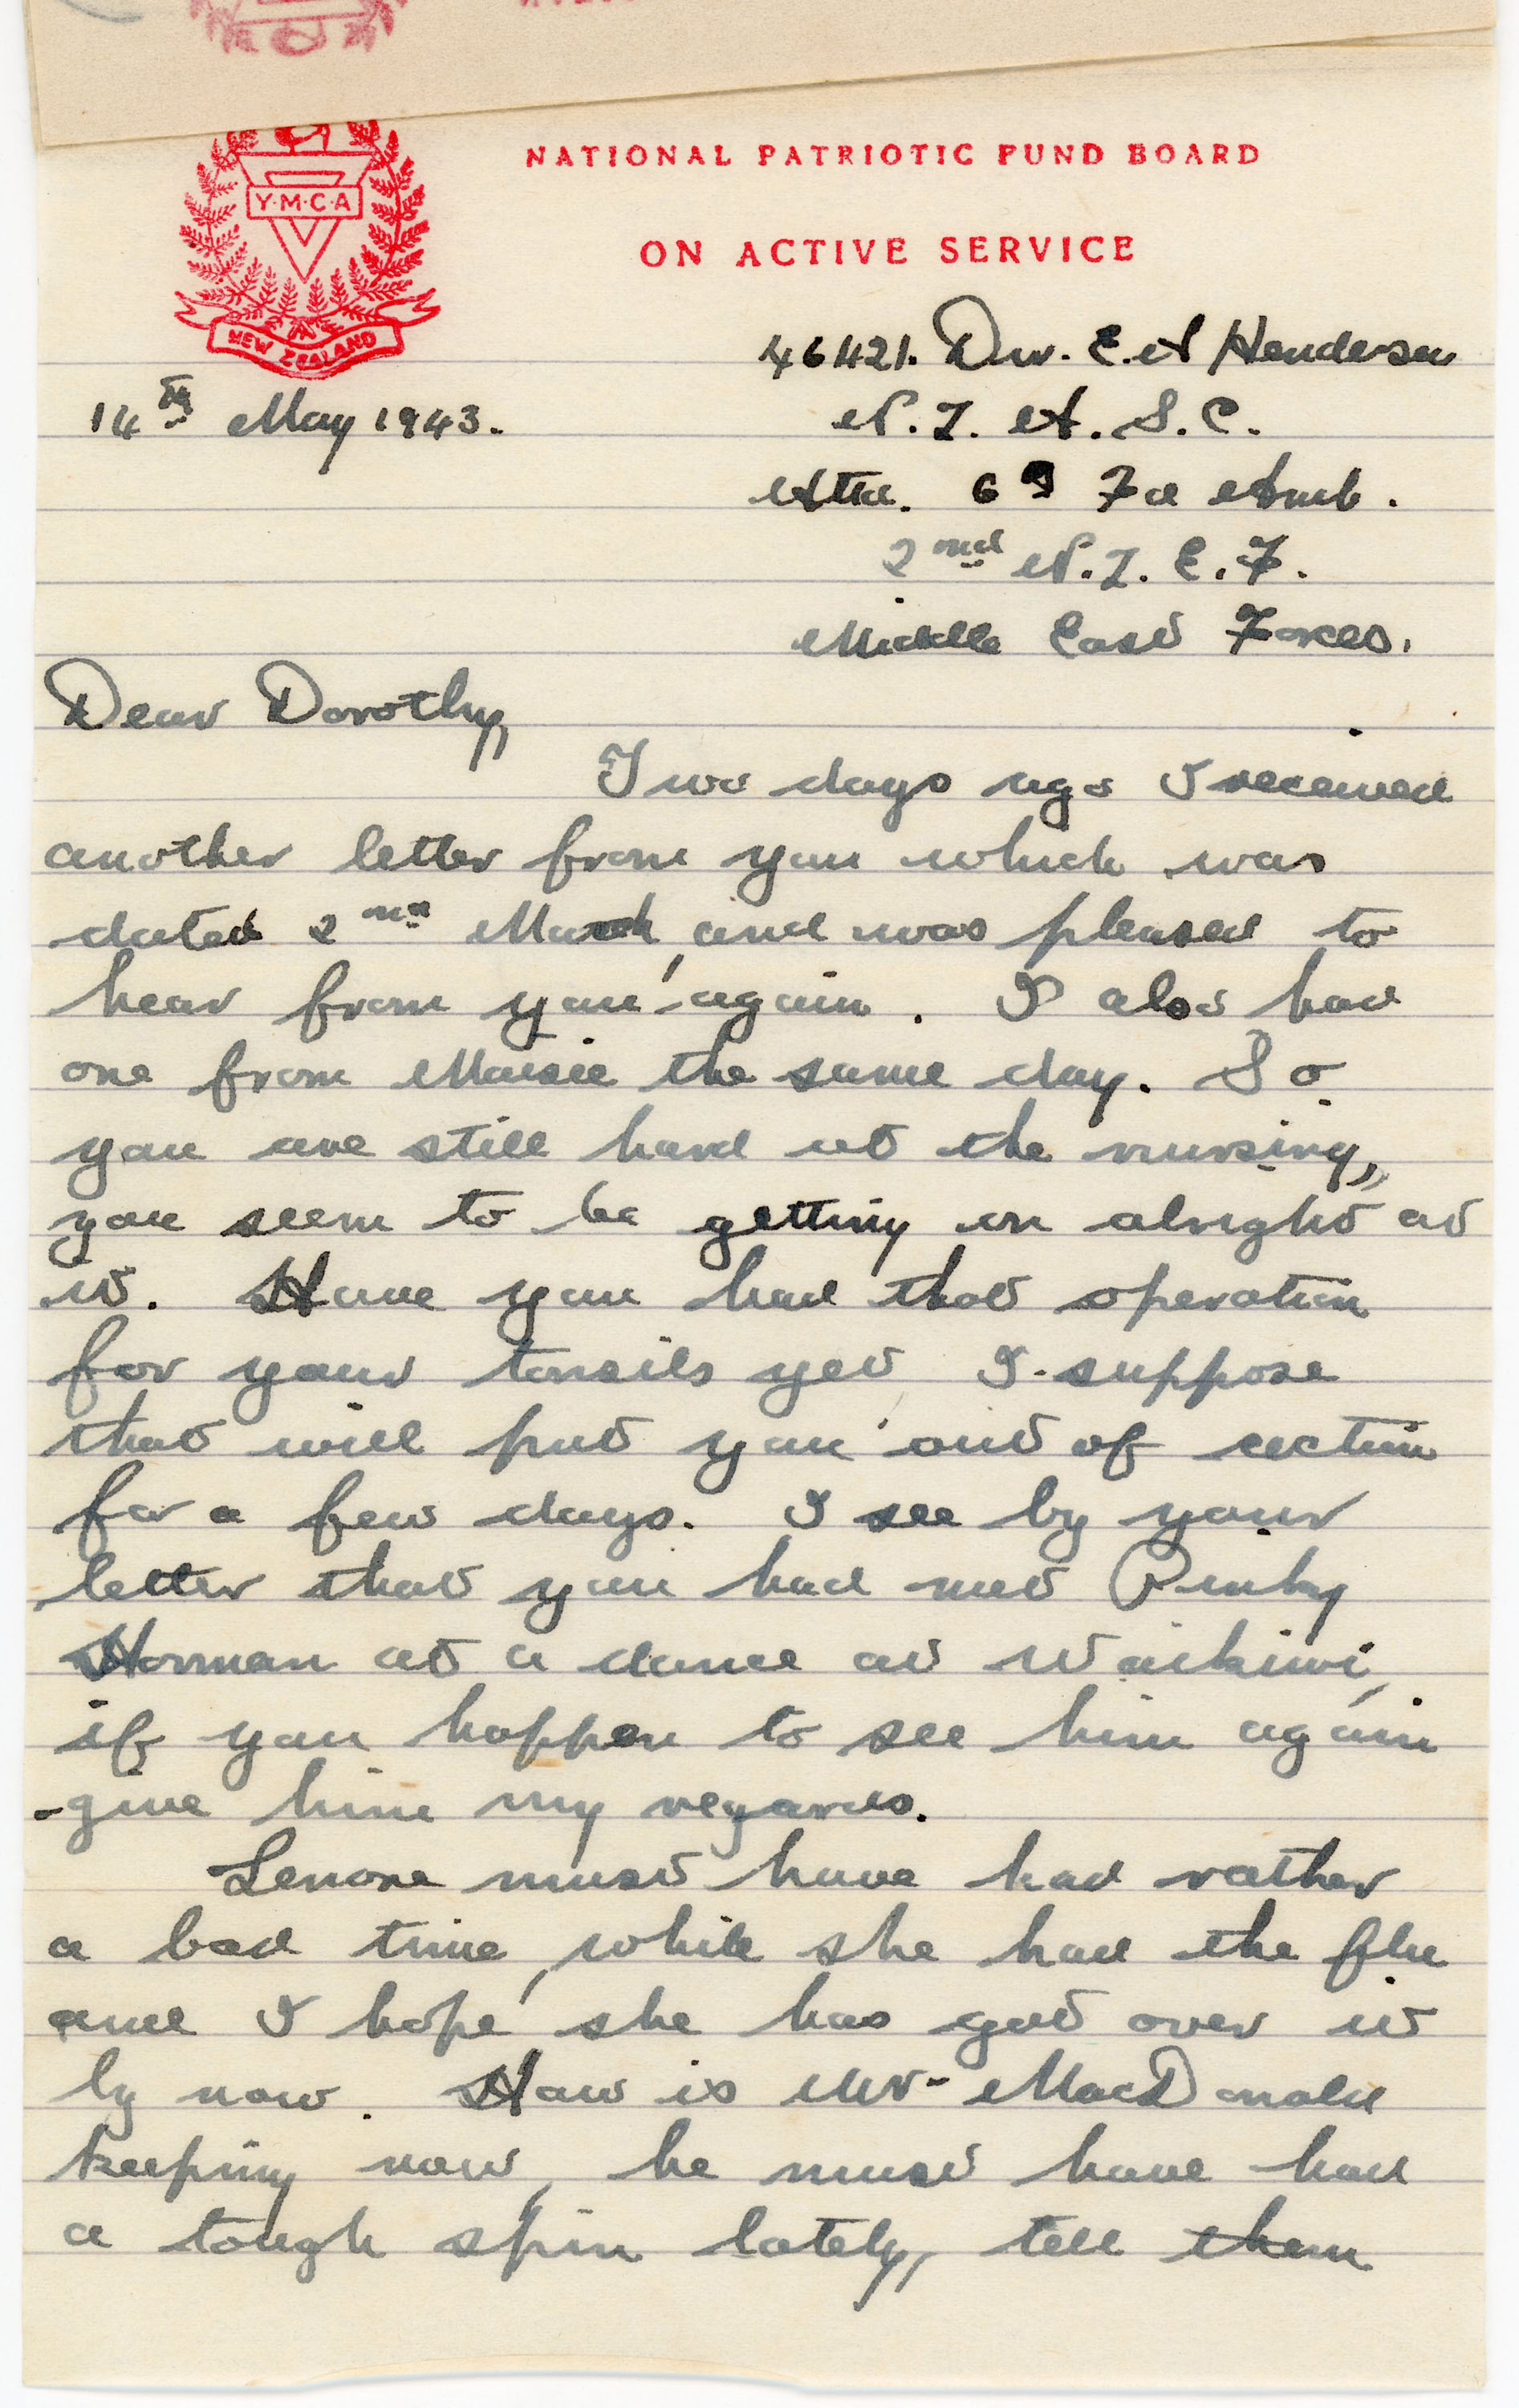 NATIONAL PATRIOTIC FUND BOARD
Y·M·C·A
ON ACTIVE SERVICE
NEW ZEALAND
46421. Dvr. E.A Henderson
14th May 1943.
N.Z. A.S.C.
Attd. 6th Fd Amb.
2nd N.Z.E.F.
Middle East Forces.
Dear Dorothy,
Two days ago I received
another letter from you which was
dated 2nd March, and was pleased to
hear from you again. I also had
one from Maisie the same day. So
you are still hard at the nursing,
you seem to be getting on alright at
it. Have you had that operation
for your tonsils yet, I suppose
that will put you out of action
for a few days. I see by your
letter that you had met Pinky
Horman at a dance at Waikiwi,
if you happen to see him again
give him my regards.
Lenore must have had rather
a bad time, while she had the flu
and I hope she has got over it
by now. How is Mr- MacDonald
keeping now, he must have had
a tough spin lately, tell them